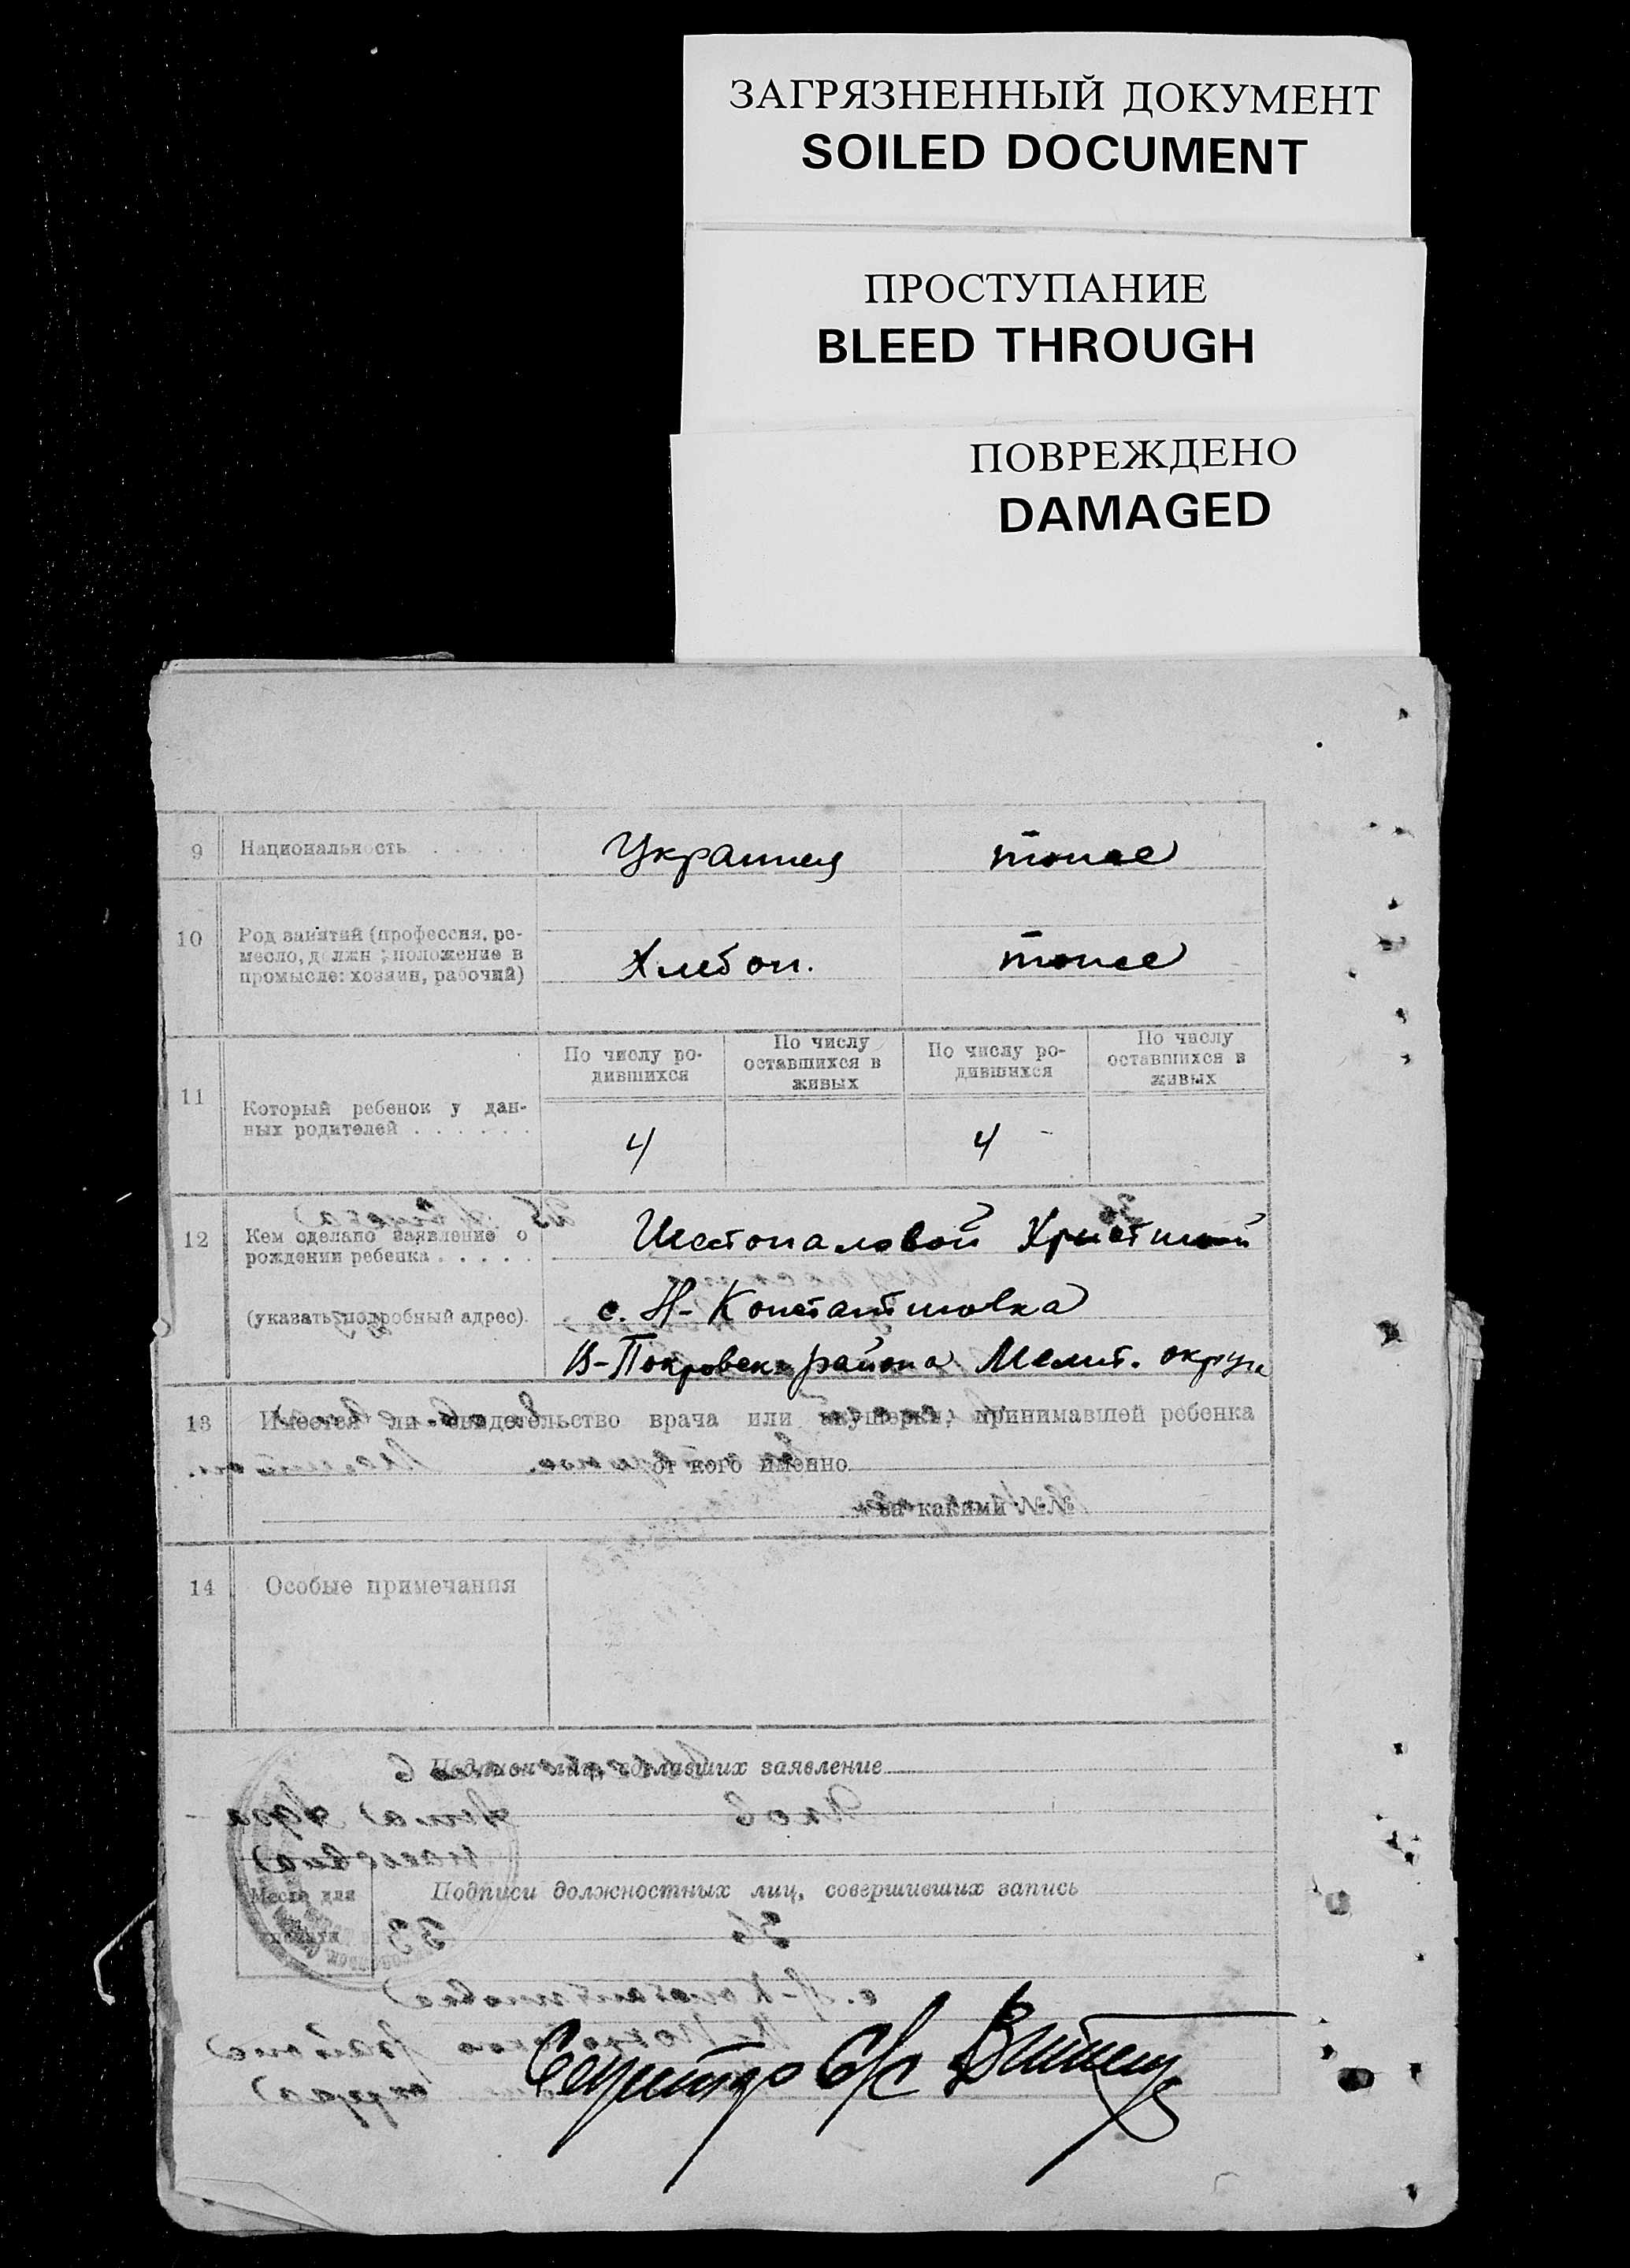 ЗАГРЯЗНЕННЫЙ ДОКУМЕНТ
SOILED DOCUMENT
ПРОСТУПАНИЕ
BLEED THROUGH
ПОВРЕЖДЕНО
DAMAGED
9 Национальность . . . . . Украинец тоже
10 Род занятий (профессия, ре-
месло, должн.; положение в
промысле: хозяин, рабочий)
Хлебоп. тоже
11 Который ребенок у дан-
ных родителей . . . . . .
По числу ро-
дившихся
По числу
оставшихся в
живых
По числу ро-
дившихся
По числу
оставшихся в
живых
4 4 -
12 Кем сделано заявление о
рождении ребенка . . . . .
(указать подробный адрес).
Шестопаловой
с. Н-Константиновка
района Мелит. округа
13 Имеется ли свидетельство врача или акушерки, принимавшей ребенка
от кого именно
за какими №№
14 Особые примечания
Подписи лиц, сделавших заявление
Место для
печати
Подписи должностных лиц, совершивших запись
с/с